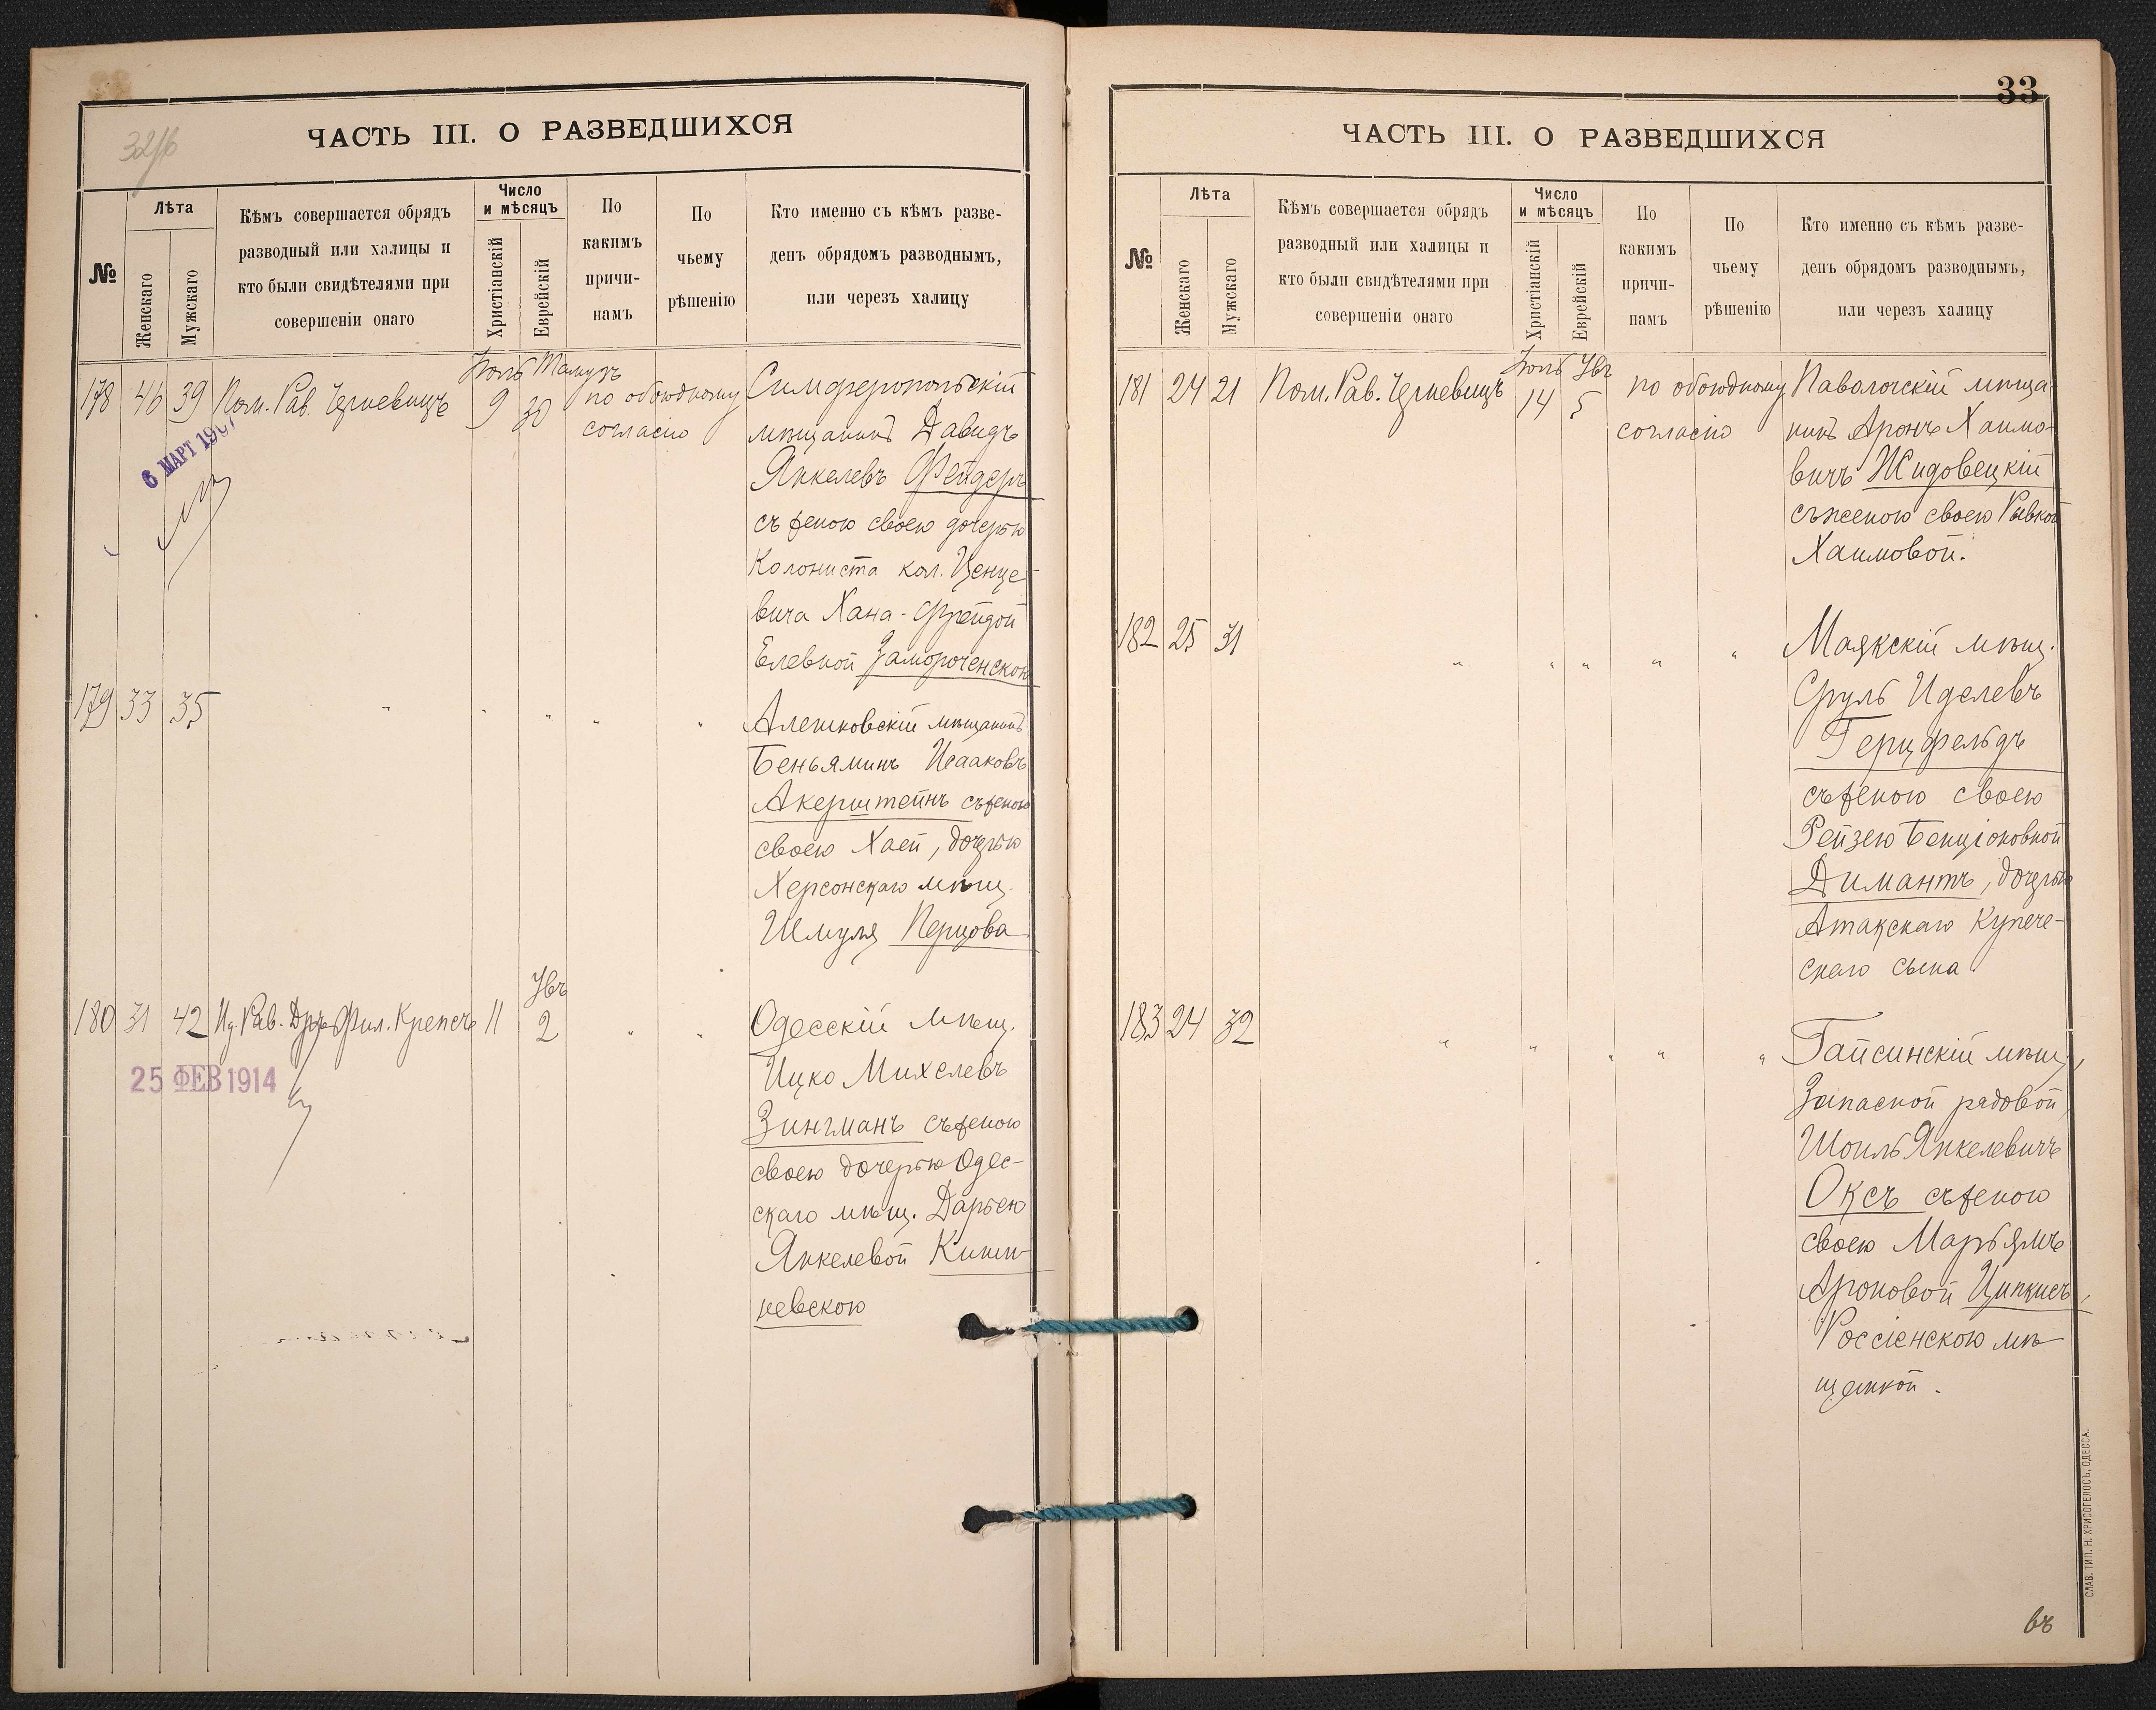 32/б
ЧАСТЬ III. О РАЗВЕДШИХСЯ
№
Лѣта
Женскаго
Мужскаго
Кѣмъ совершается обрядъ
разводный или халицы и
кто были свидѣтелями при
совершеніи онаго
Число
и мѣсяцъ
Христіанскій
Еврейскій
По
какимъ
причи-
намъ
По
чьему
рѣшенію
Кто именно съ кѣмъ разве-
денъ обрядомъ разводнымъ,
или черезъ халицу
178 46 39 Пом. Рав. Черневицъ
Іюль Тамузъ
9 30
по обоюдному
согласію
Симферопольскій
мѣщанинъ Давидъ
Янкелевъ Фейдеръ
съ женою своею дочерью
Колониста кол.
вича Хана-Фрейдой
Елевной Замороченскою
6 МАРТ 1907
179 33 35 " " " " "
Алешковскій мѣщанинъ
Беньяминъ Исааковъ
Акерштейнъ съ женою
своею Хаей, дочерью
Херсонскаго мѣщ.
Шмуля Перцова
180 31 42 И. Рав. Д-ръ Фил. Крепсъ 11
Увъ
2 " "
Одесскій мѣщ.
Ицко Михелевъ
Зингманъ съ женою
своею дочерью Одес-
скаго мѣщ. Дарьею
Янкелевой Киши-
невскою
25 ФЕВ 1914
33
ЧАСТЬ III. О РАЗВЕДШИХСЯ
№
Лѣта
Женскаго
Мужскаго
Кѣмъ совершается обрядъ
разводный или халицы и
кто были свидѣтелями при
совершеніи онаго
Число
и мѣсяцъ
Христіанскій
Еврейскій
По
какимъ
причи-
намъ
По
чьему
рѣшенію
Кто именно съ кѣмъ разве-
денъ обрядомъ разводнымъ,
или черезъ халицу
181 24 21 Пом. Рав. Черневицъ
Іюль Увъ
14 5
по обоюдному
согласію
Паволочскій мѣща-
нинъ Аронъ Хаимо-
вичъ Жидовецкій
съ женою своею Рывкой
Хаимовой.
182 25 31 " " " " "
Маякскій мѣщ.
Сруль Иделевъ
Герцфельдъ
съ женою своею
Рейзею Бенціоновной
Димантъ, дочерью
Атакскаго купече-
скаго сына
183 24 32 " " " " "
Гайсинскій мѣщ.,
Запасной рядовой,
Шоиль Янкелевичъ
Оксъ съ женою
своею Марьямъ
Ароновой Ципкисъ,
Россіенскою мѣ-
щанкой.
СЛАВ. ТИП. Н. ХРИСОГЕЛОСЪ, ОДЕССА.
въ